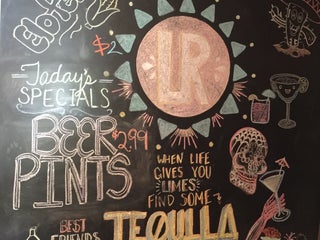 $2
LR
Today's
SPECIALS
BEER
PINTS
$2.99
WHEN LIFE
GIVES YOU
LIMES
FIND SOME
TEQUILA
BEST
FRIENDS